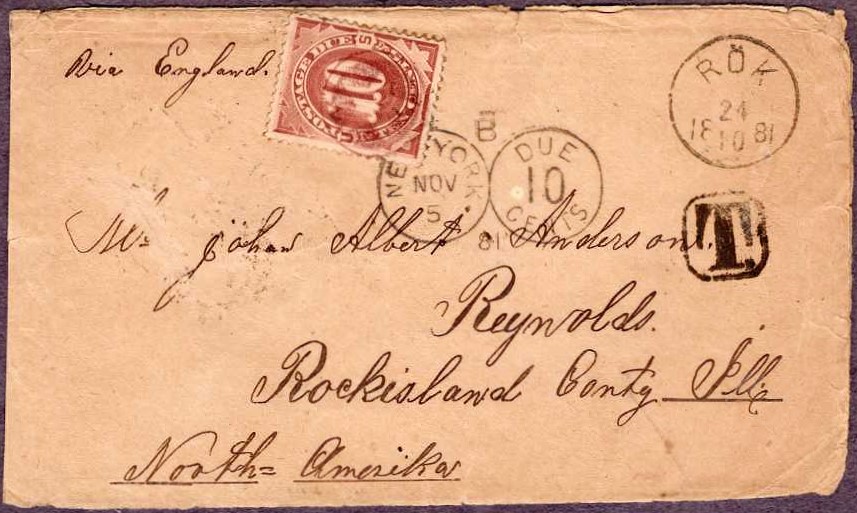 Via England.
POSTAGE DUE
10
RÖK
24
18 10 81
B
NEW YORK
NOV
5
81
DUE
10
CENTS
T
Mr Johan Albert Anderson.
Reynolds.
Rockisland Conty Ill.
North= Amerika